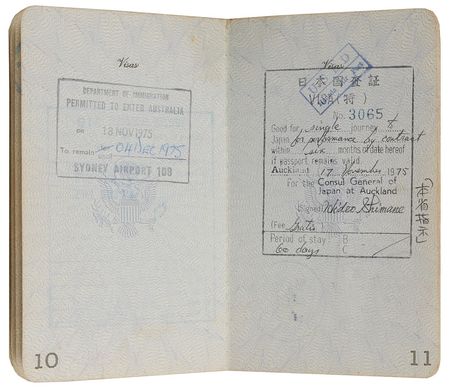 Visas
DEPARTMENT OF IMMIGRATION
PERMITTED TO ENTER AUSTRALIA
on 18 NOV 1975
To remain until 04 DEC 1975
SYDNEY AIRPORT 108
10
Visas
USED
日本国査証
VISA(特)
No. 3065
Good for single journey to
Japan for performance by contract
within six months of date hereof
if passport remains valid.
Auckland, 17 November 1975
For the Consul General of
Japan at Auckland
(Signed) Hideo Shimane
(Fee) Gratis
Period of stay: B
60 days C
(本省指示)
11